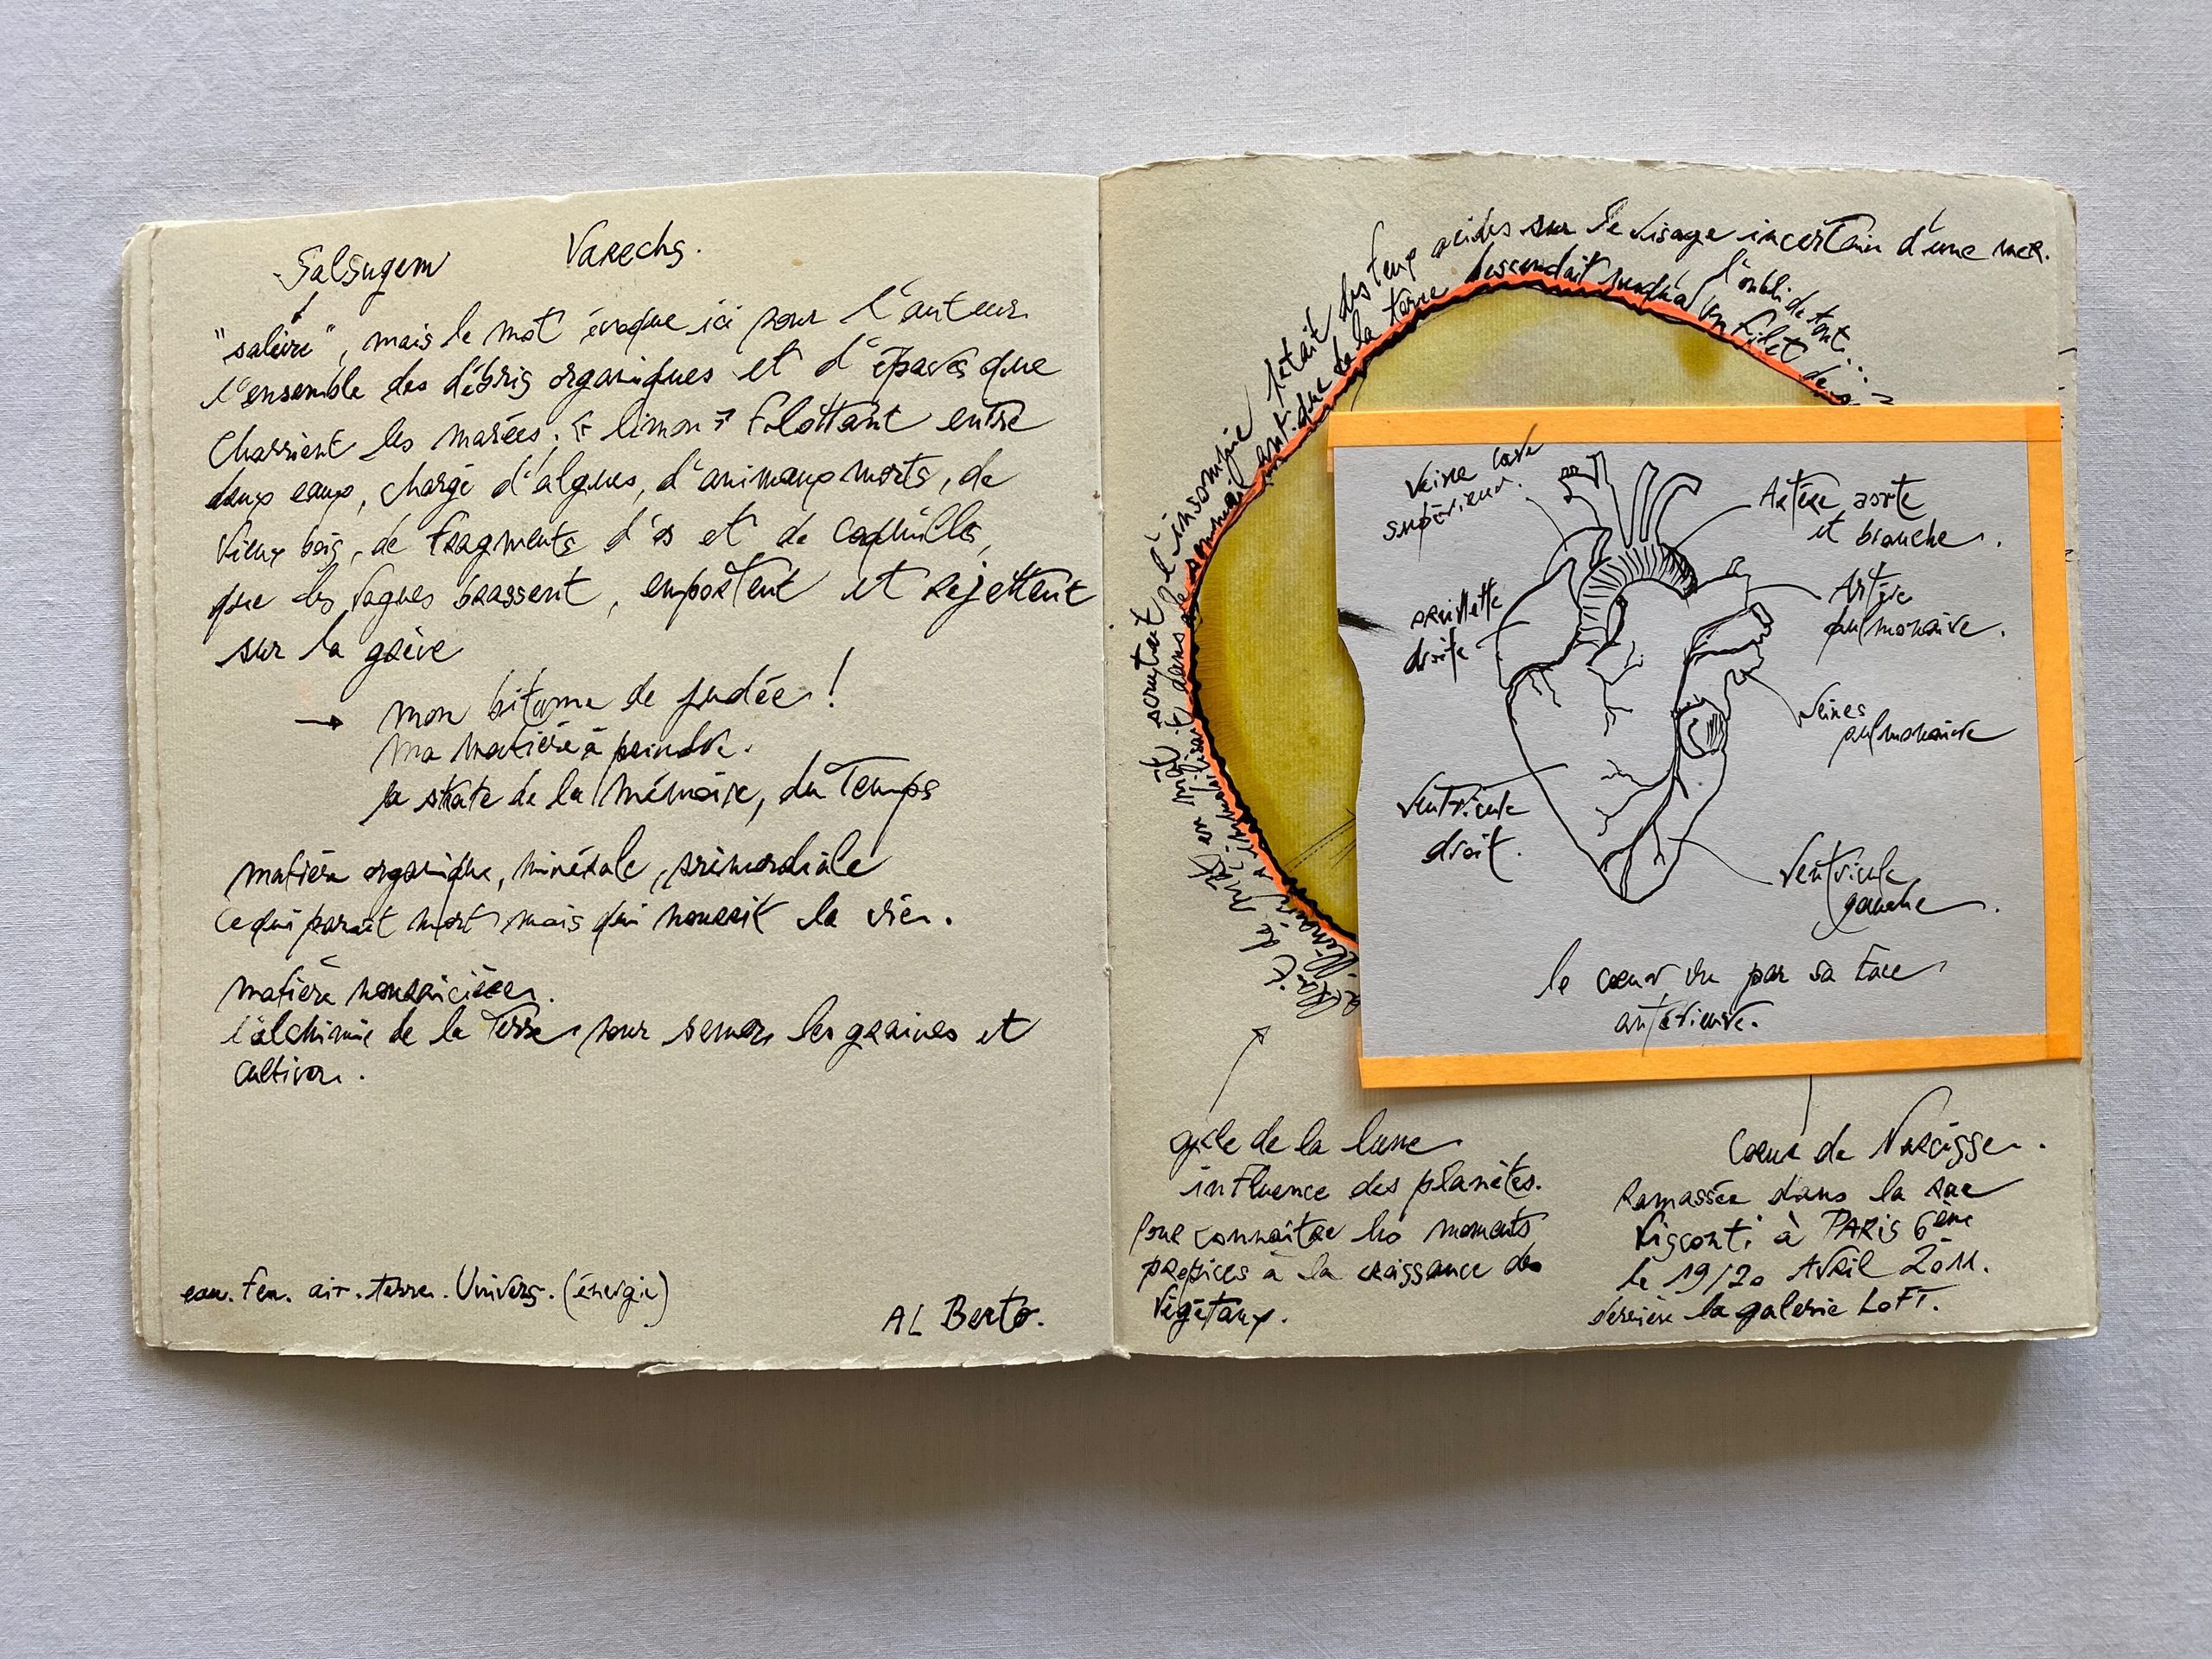 Salsugem Varechs.
"saleire", mais le mot évoque ici pour l'auteur
l'ensemble des débris organiques et d'épaves que
charrient les marées : « limon » flottant entre
deux eaux, chargé d'algues, d'animaux morts, de
vieux bois, de fragments d'os et de coquilles,
que les vagues brassent, emportent et rejettent
sur la grève
→ mon bitume de judée !
ma matière à peindre.
la strate de la mémoire, du Temps
matière organique, minérale, primordiale
ce qui parait mort mais qui nourrit la vie.
matière nourricière.
l'alchimie de la Terre pour semer les graines et
cultiver.
eau. feu. air. terre. Univers. (énergie)
AL Berto.
scrutait l'insomnie jetait des feux acides sur le visage incertain d'une mer.
dans le sommeil antique de la terre descendait jusqu'à
l'oubli de tout...
un filet de
veine cave
supérieur.
Artère aorte
et branche.
oreillette
droite
Artère
pulmonaire.
veines
pulmonaire
ventricule
droit.
ventricule
gauche.
le coeur vu par sa face
antérieure.
cycle de la lune
influence des planètes.
Pour connaître les moments
propices à la croissance des
végétaux.
Coeur de Narcisse.
Ramassée dans la rue
Visconti à PARIS 6ème
le 19/20 Avril 2011.
derrière la galerie LOFT.